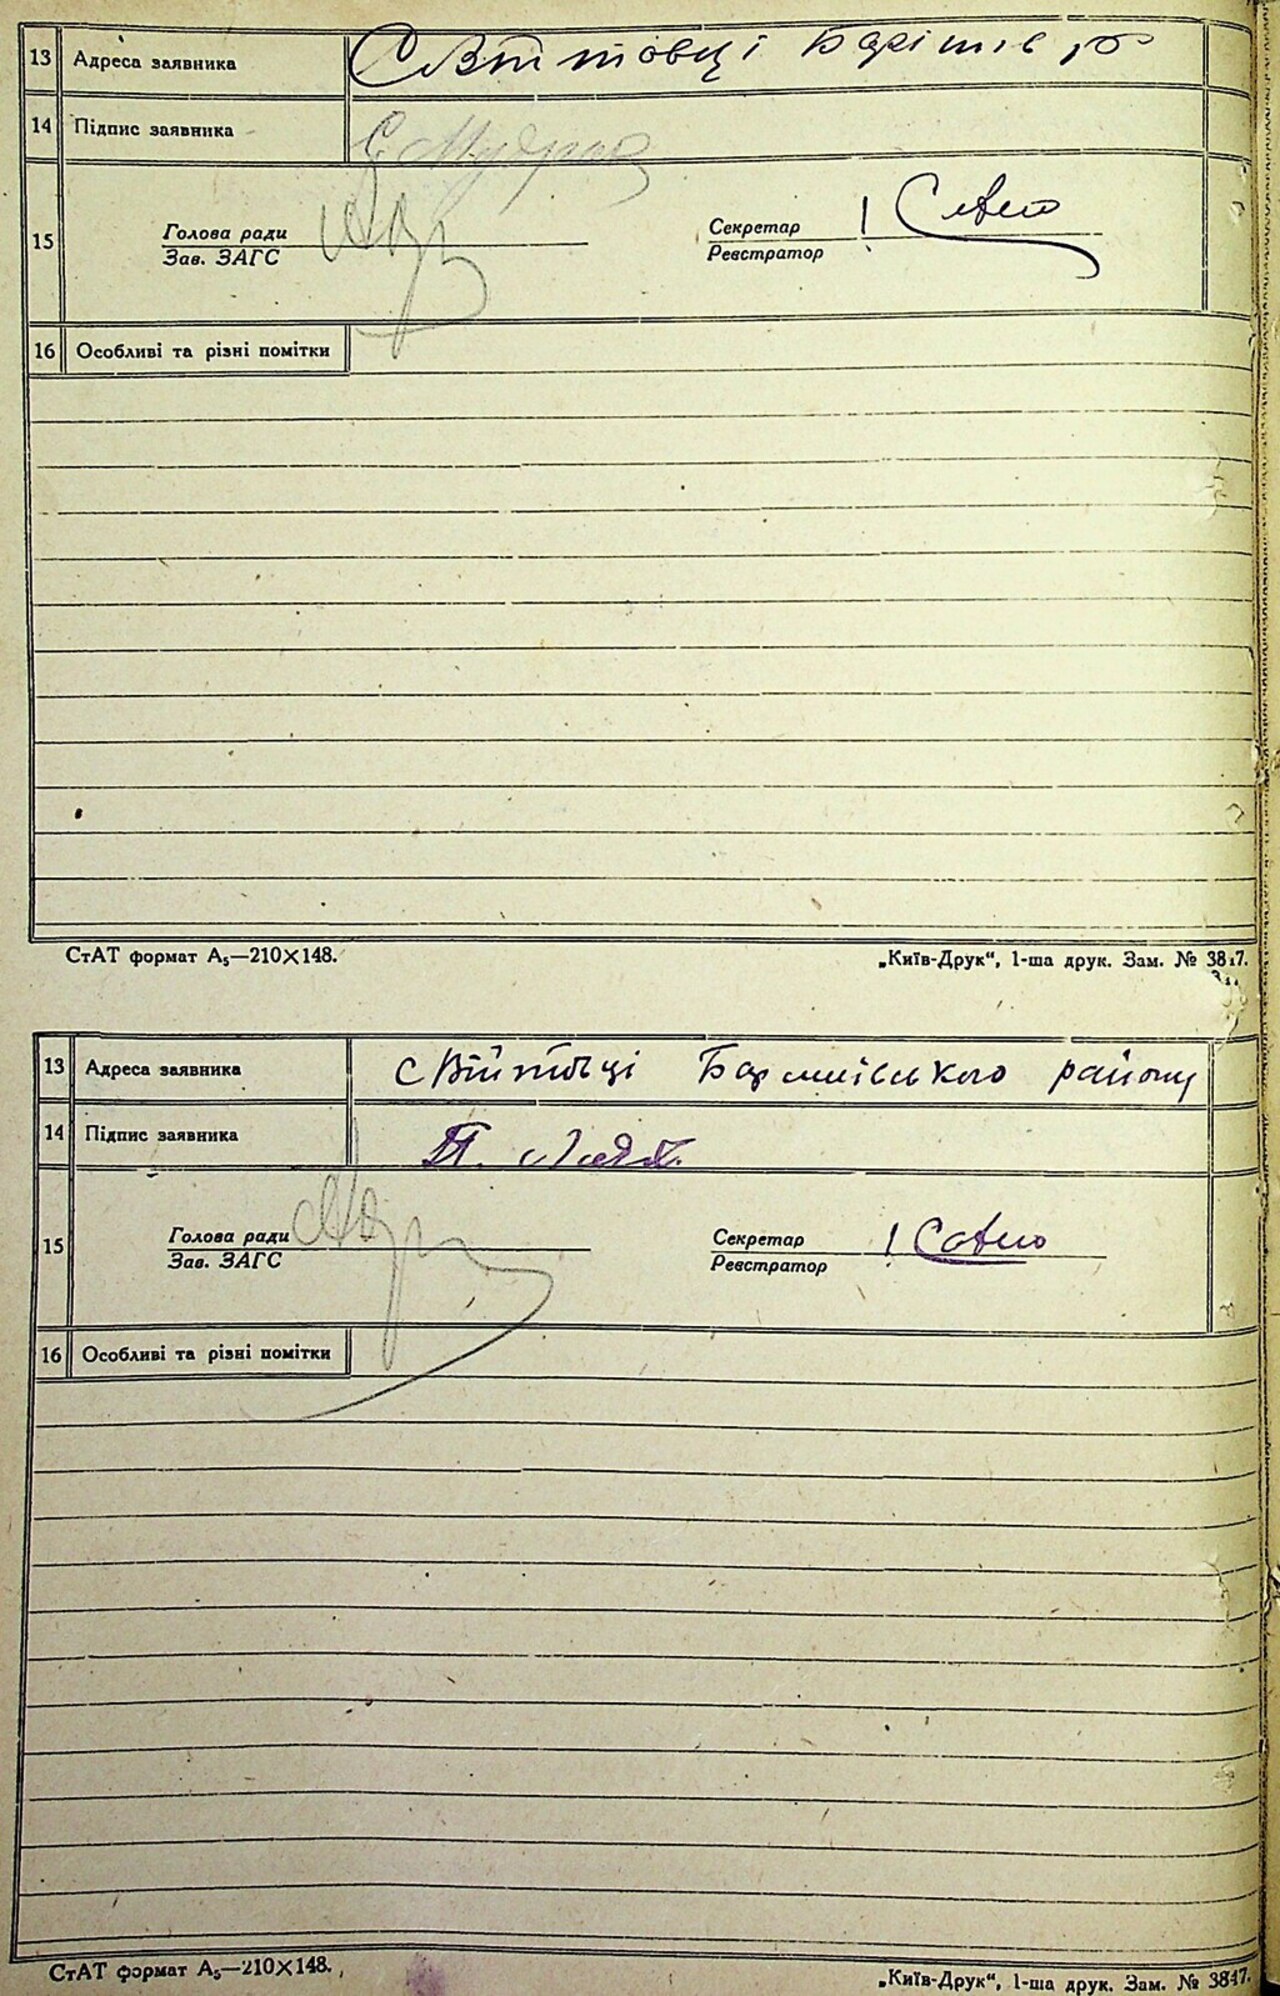 13 Адреса заявника С Війтовці Баришів р
14 Підпис заявника Є Мудрак
15 Голова ради Секретар
Зав. ЗАГС Реєстратор
16 Особливі та різні помітки
СтАТ формат А₅—210×148.
„Київ-Друк“, 1-ша друк. Зам. № 3847.
13 Адреса заявника с Війтовці Баришівського району
14 Підпис заявника П.
15 Голова ради Секретар
Зав. ЗАГС Реєстратор
16 Особливі та різні помітки
СтАТ формат А₅—210×148.
„Київ-Друк“, 1-ша друк. Зам. № 3847.